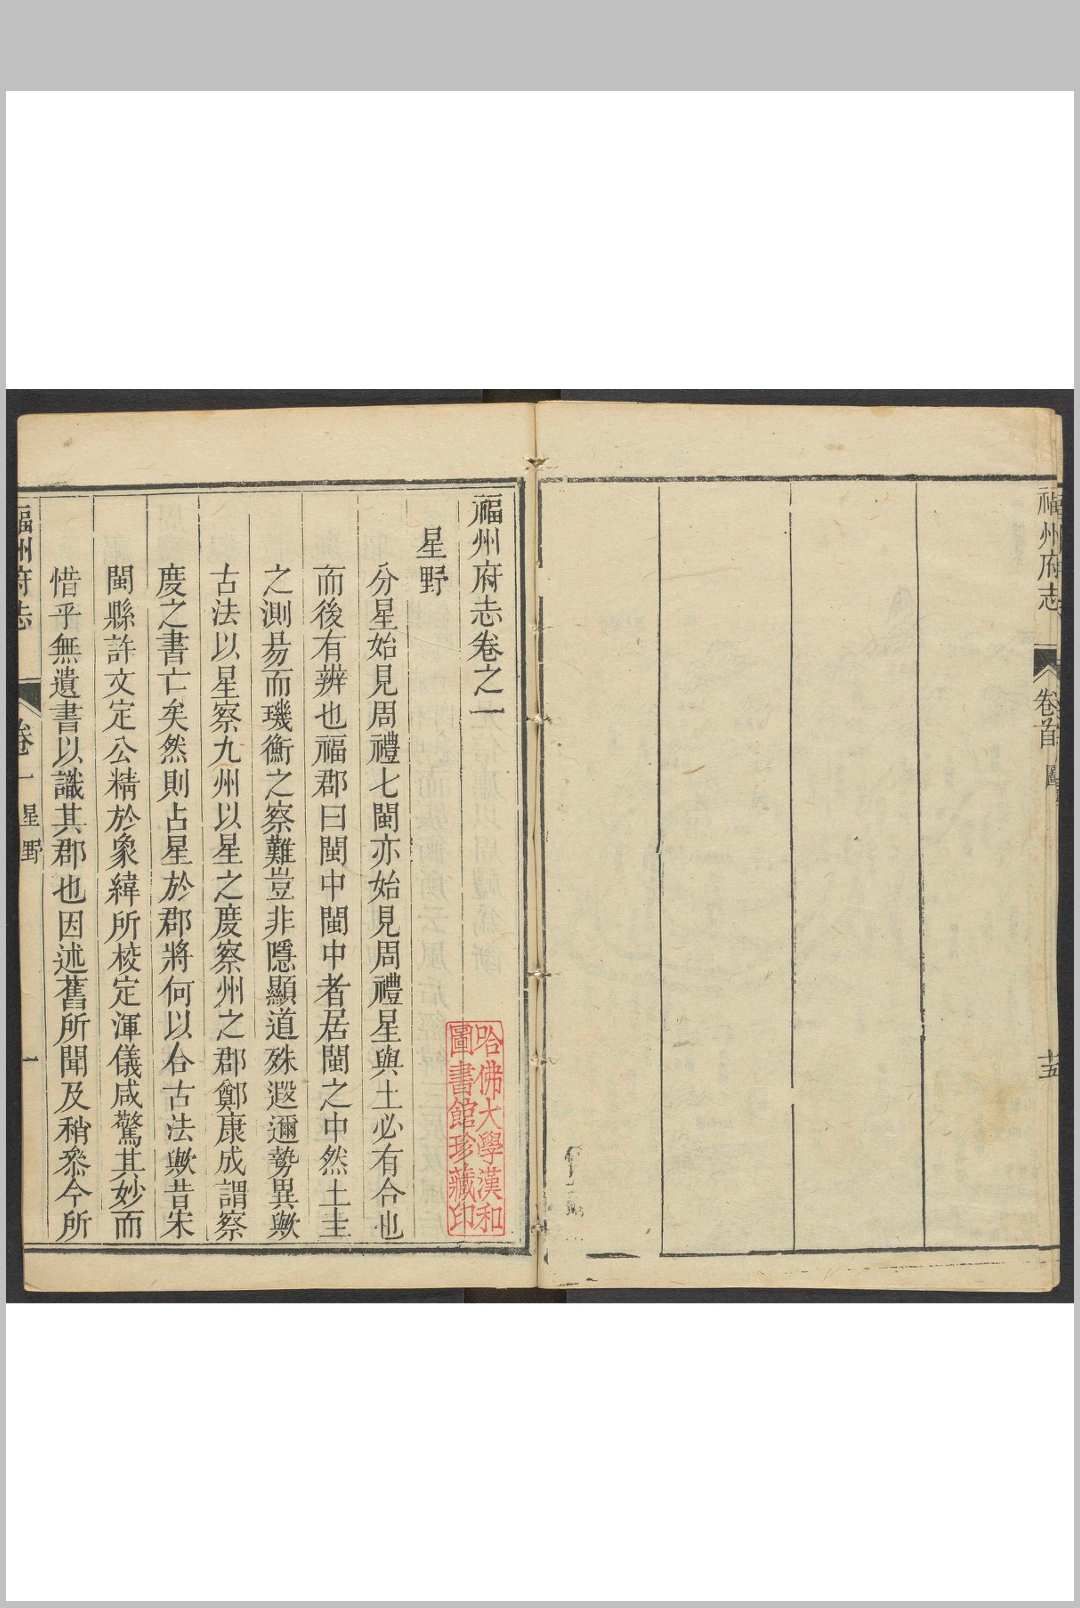 福州府志
卷首
圖
十五
福州府志卷之一
星野
分星始見周禮七閩亦始見周禮星與土必有合也
而後有辨也福郡曰閩中閩中者居閩之中然土圭
之測易而璣衡之察難豈非隱顯道殊遐邇勢異歟
古法以星察九州以星之度察州之郡鄭康成謂察
度之書亡矣然則占星於郡將何以合古法歟昔宋
閩縣許文定公精於象緯所校定渾儀咸驚其妙而
惜乎無遺書以識其郡也因述舊所聞及稍叅今所
福州府志
卷一
星野
一
哈佛大學漢和
圖書館珍藏印